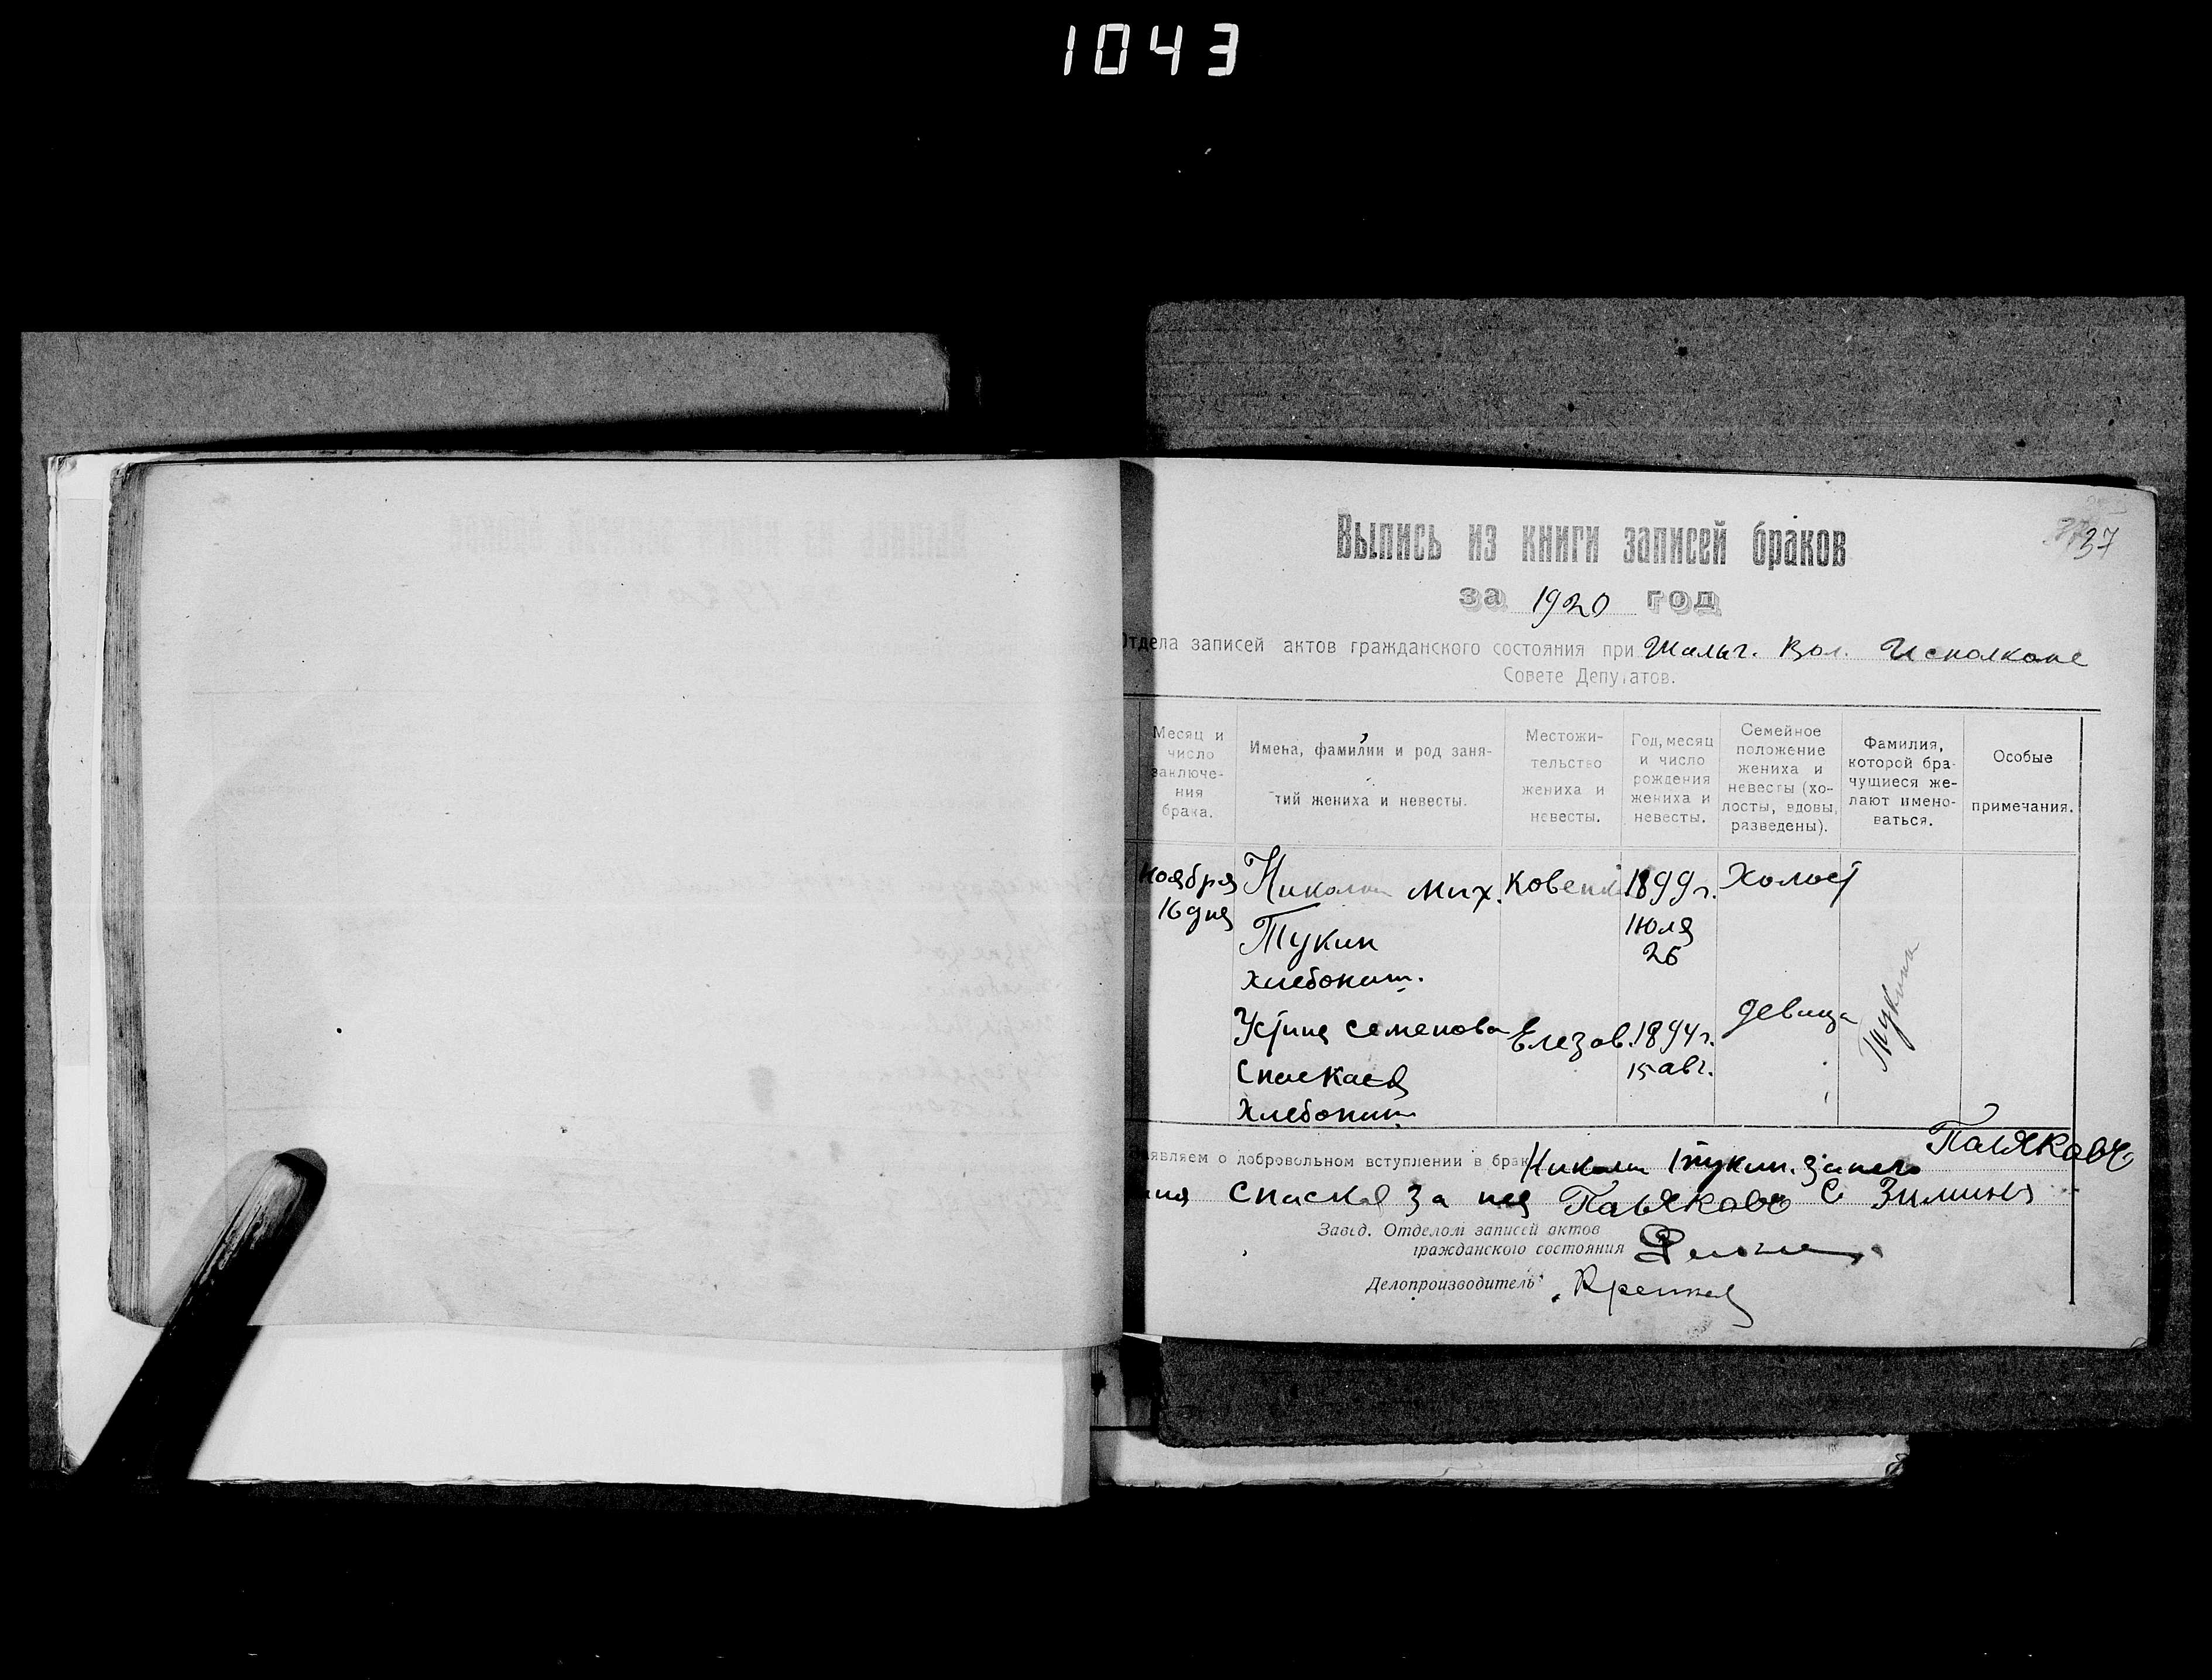 1043
37
Выпись из книги записей браков
за 1920 год
Отдела записей актов гражданского состояния при Шальг. Вол. Исполкоме
Совете Депутатов.
Месяц и число заключения брака.
Имена, фамилии и род занятий жениха и невесты.
Местожительство жениха и невесты.
Год, месяц и число рождения жениха и невесты.
Семейное положение жениха и невесты (холосты, вдовы, разведены).
Фамилия, которой брачущиеся желают именоваться.
Особые примечания.
Ноября Николай Мих. 1899 г. Холост
16 дня Тукин Июля
26
хлебопаш.
Устина Семенова Елезов. 1894 г. девица
Спаская 15 авг.
Хлебопаш.
Тукина
Заявляем о добровольном вступлении в брак Николай Тукин. за него
Спаская за нея
Завед. Отделом записей актов
гражданского состояния
Делопроизводитель